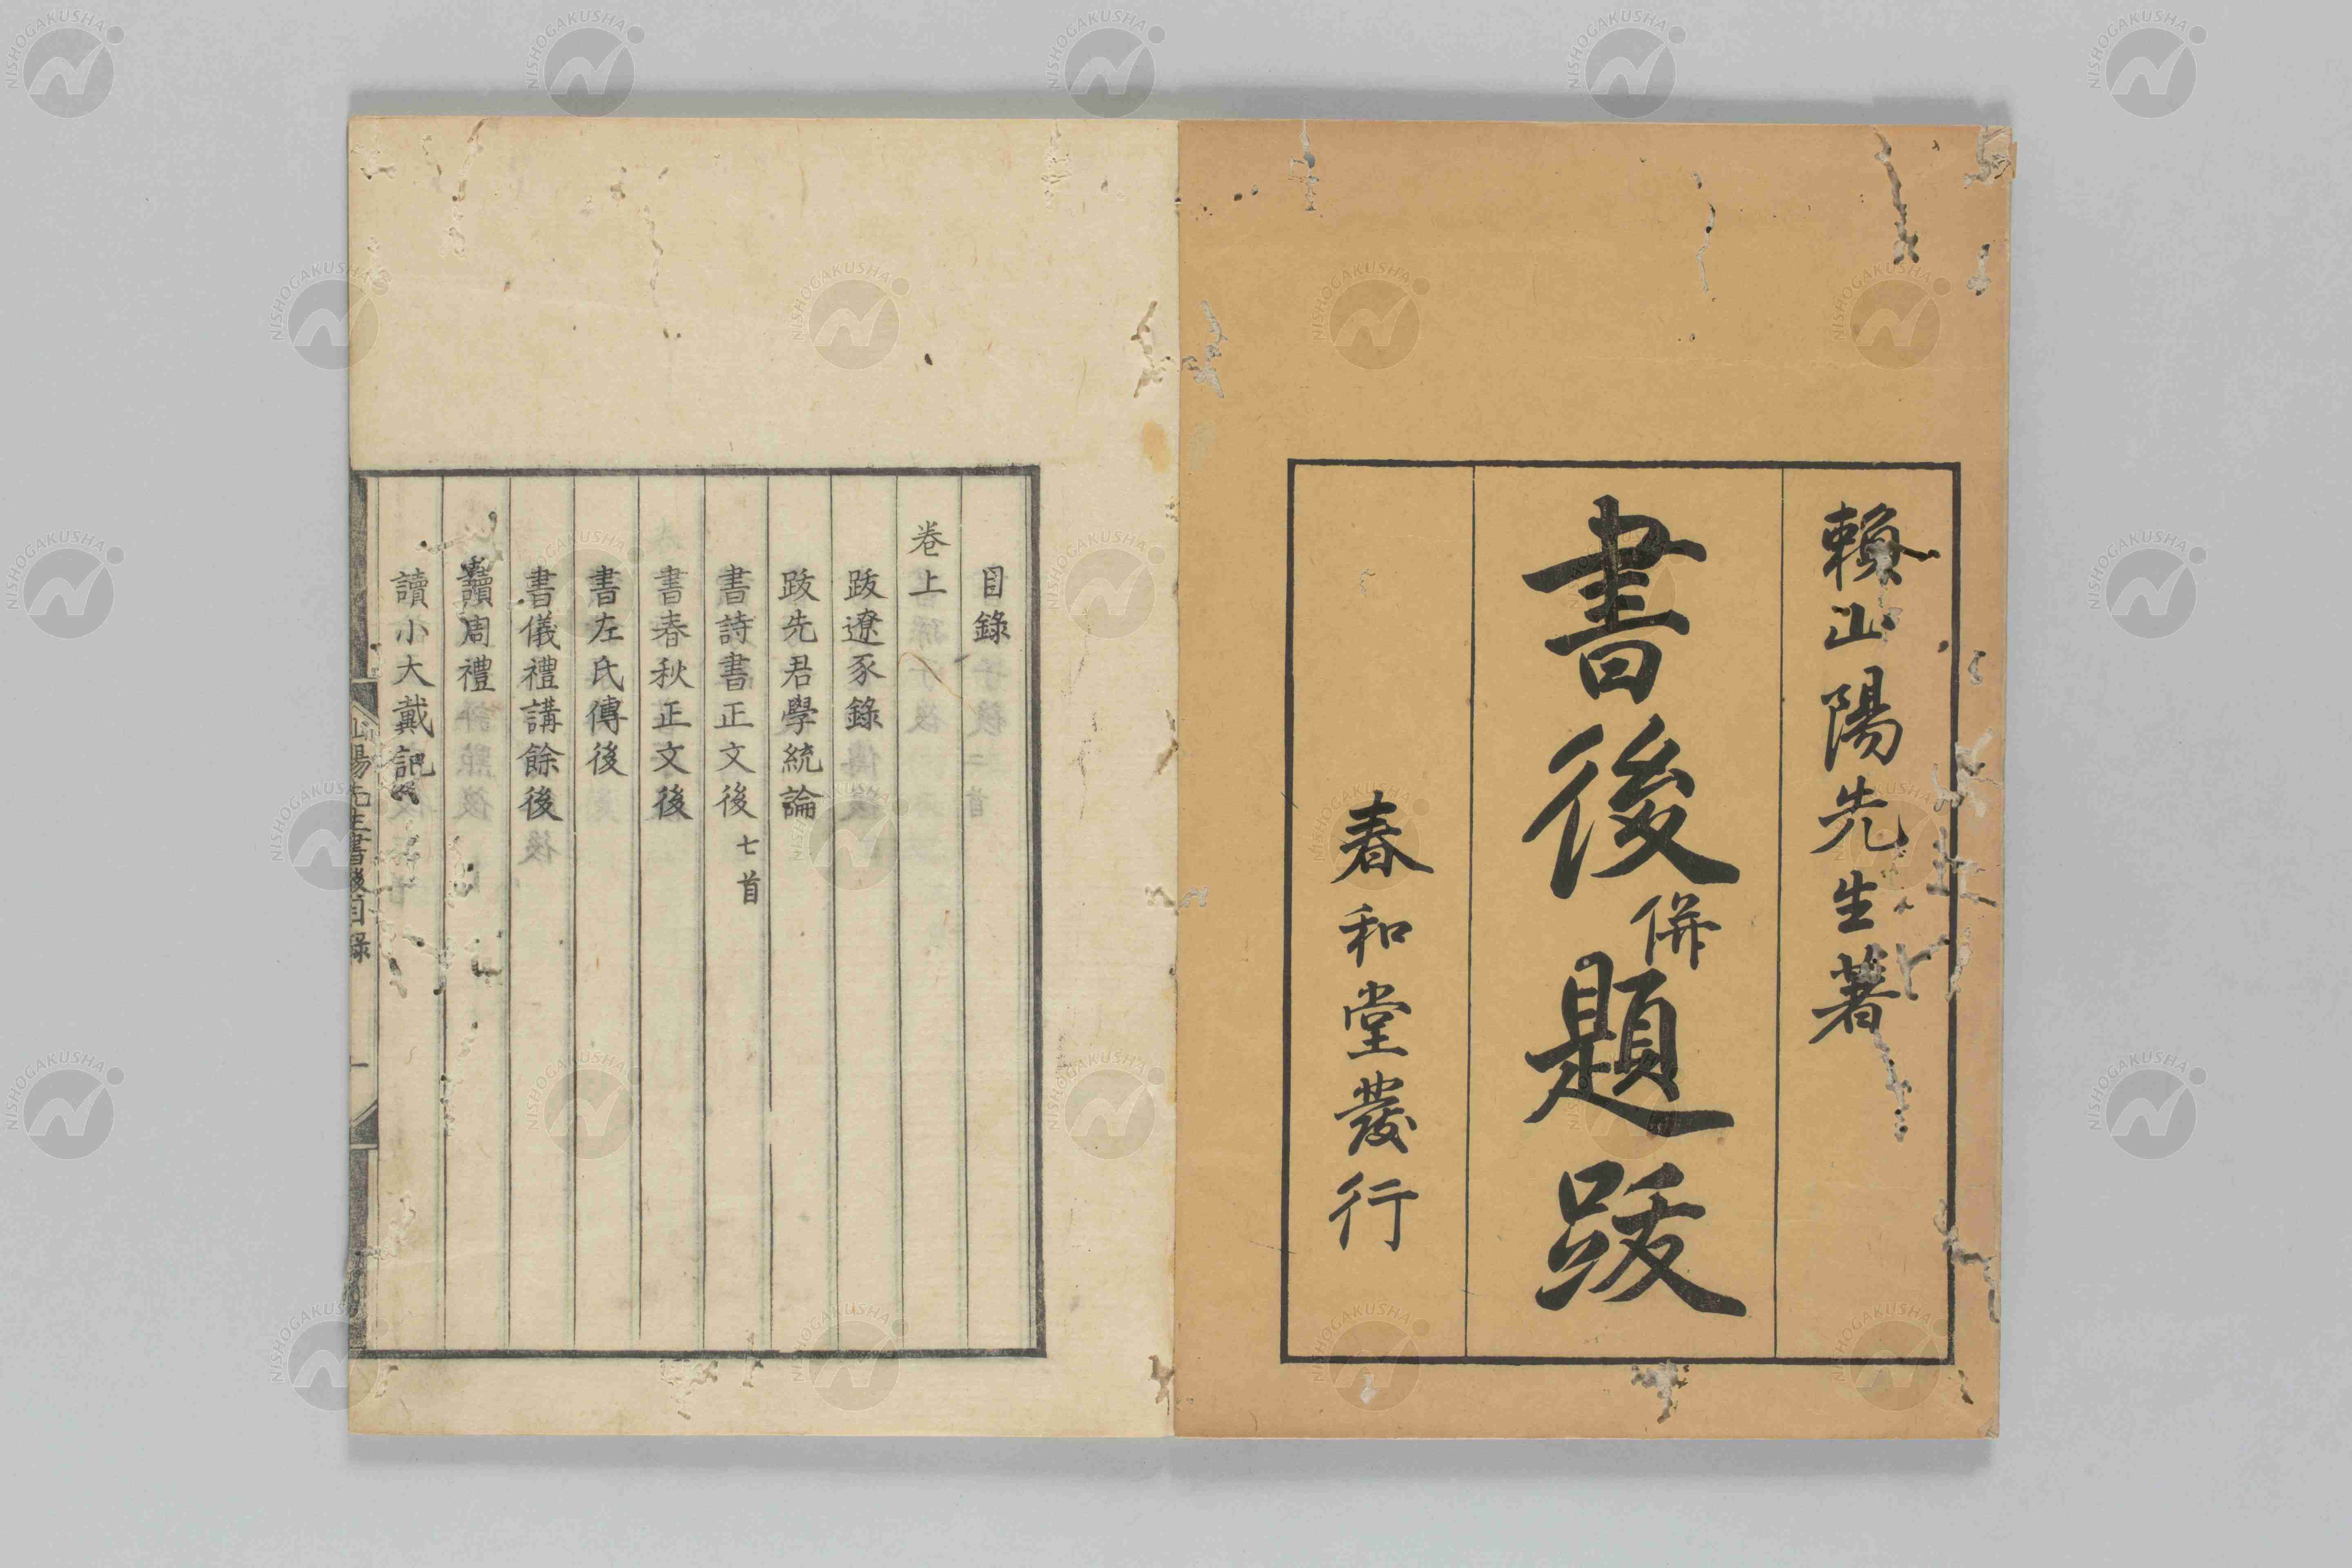 賴山陽先生著
書後 併 題跋
春和堂發行
目錄
卷上
跋遼豕錄
跋先君學統論
書詩書正文後 七首
書春秋正文後
書左氏傳後
書儀禮講餘後
讀周禮
讀小大戴記
山陽先生書後目錄 一
NISHOGAKUSHA